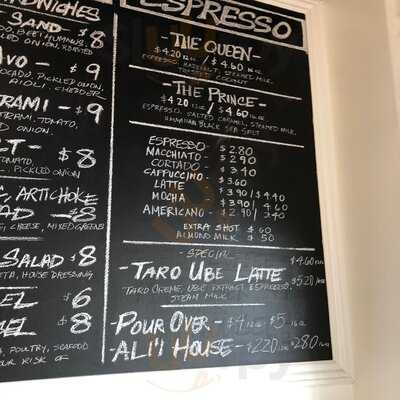 NDWICHES
SAND - $8
DO, BEET HUMMUS,
LED ONION, ROASTED
AVO - $9
OCADO, PICKLED ONION,
AIOLI, CHEDDAR
RAMI - $9
TRAMI, TOMATO,
D ONION.
CT - $8
TOMATO,
, PICKLED ONION
, ARTICHOKE
AD - $8
, CHEESE, MIXED GREENS
SALAD $8
ETA, HOUSE DRESSING
EL $6
EL $8
, POULTRY, SEAFOOD
OUR RISK OF
ESPRESSO
- THE QUEEN -
$4.20 12oz / $4.60 16oz
ESPRESSO, HAZELNUT, STEAMED MILK,
TOASTED COCONUT
- THE PRINCE -
$4.20 12oz / $4.60 16oz
ESPRESSO, SALTED CARAMEL, STEAMED MILK,
HAWAIIAN BLACK SEA SALT
ESPRESSO - $2.80
MACCHIATO - $2.90
CORTADO - $3.40
CAPPUCCINO - $3.60
LATTE $3.90 / $4.40
MOCHA $3.90 / 4.60
AMERICANO - $2.90 / 3.40
EXTRA SHOT $.60
ALMOND MILK $.50
- SPECIAL -
- TARO UBE LATTE $4.60
TARO CREME, UBE EXTRACT, ESPRESSO, $5.20
STEAM MILK
POUR OVER - $4 12oz $5 16oz
ALI'I HOUSE - $2.20 12oz $2.80 16oz